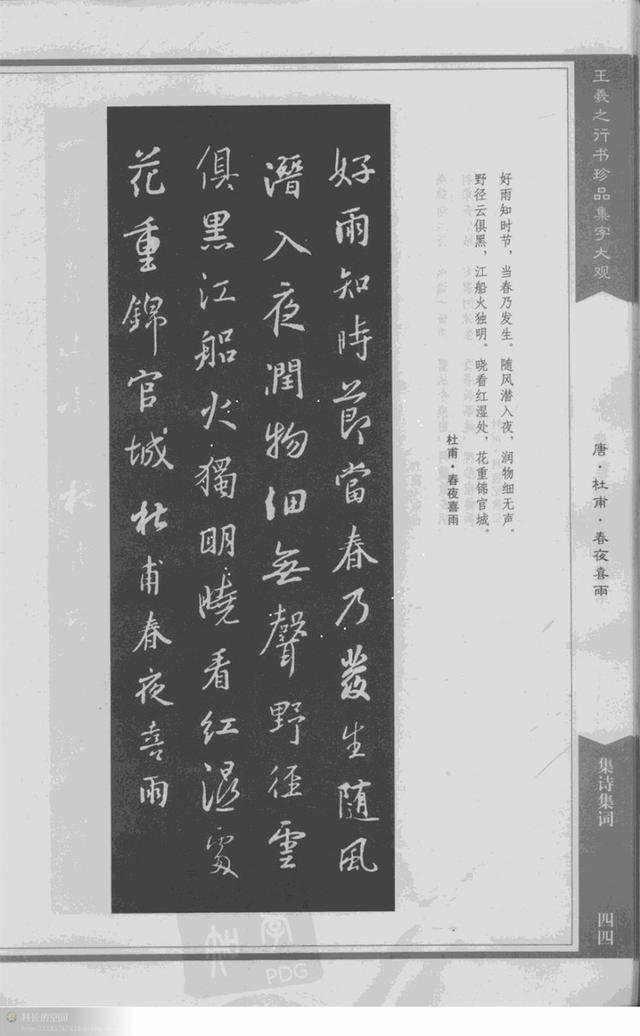 王羲之行书珍品集字大观
唐·杜甫·春夜喜雨
集诗集词
四四
好雨知时节，当春乃发生。随风潜入夜，润物细无声。
野径云俱黑，江船火独明。晓看红湿处，花重锦官城。
杜甫·春夜喜雨
好雨知時節當春乃發生隨風
潛入夜潤物細無聲野徑雲
俱黑江船火獨明曉看紅濕處
花重錦官城杜甫春夜喜雨
PDG
科长的空间